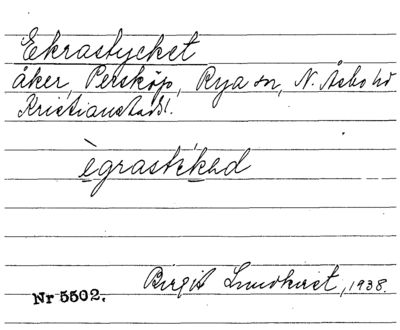 Ekrastycket
åker, Persköp, Rya sn, N. Åsbo hd
Kristianstads l.
ègrastékəd
Birgit Lundkvist, 1938.
Nr 5502.